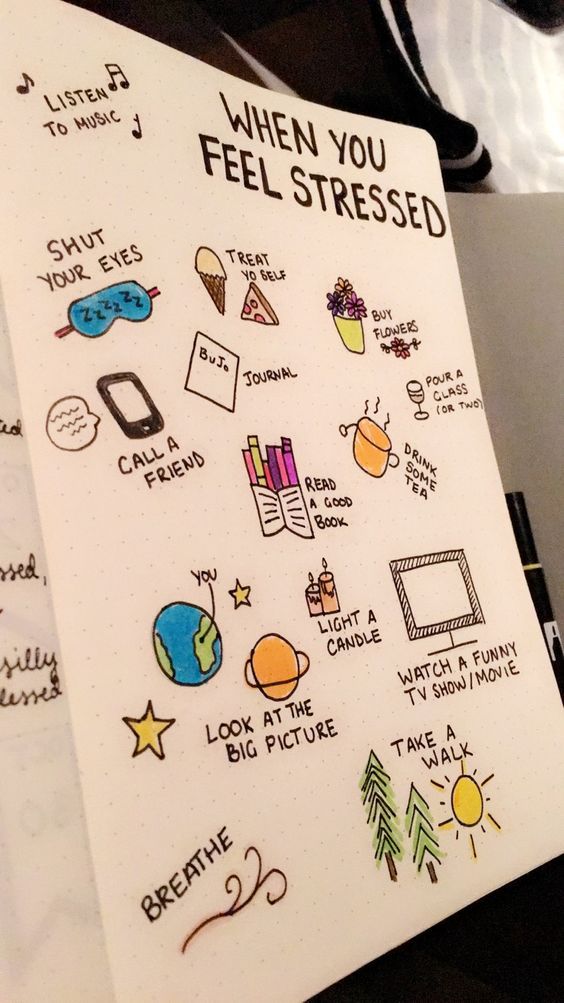 LISTEN
TO MUSIC
WHEN YOU
FEEL STRESSED
SHUT
YOUR EYES
ZZZZZZ
TREAT
YO SELF
BUY
FLOWERS
BuJo
JOURNAL
POUR A
GLASS
(OR TWO)
CALL A
FRIEND
DRINK
SOME
TEA
READ
A GOOD
BOOK
YOU
LIGHT A
CANDLE
WATCH A FUNNY
TV SHOW/MOVIE
LOOK AT THE
BIG PICTURE
TAKE A
WALK
BREATHE
silly